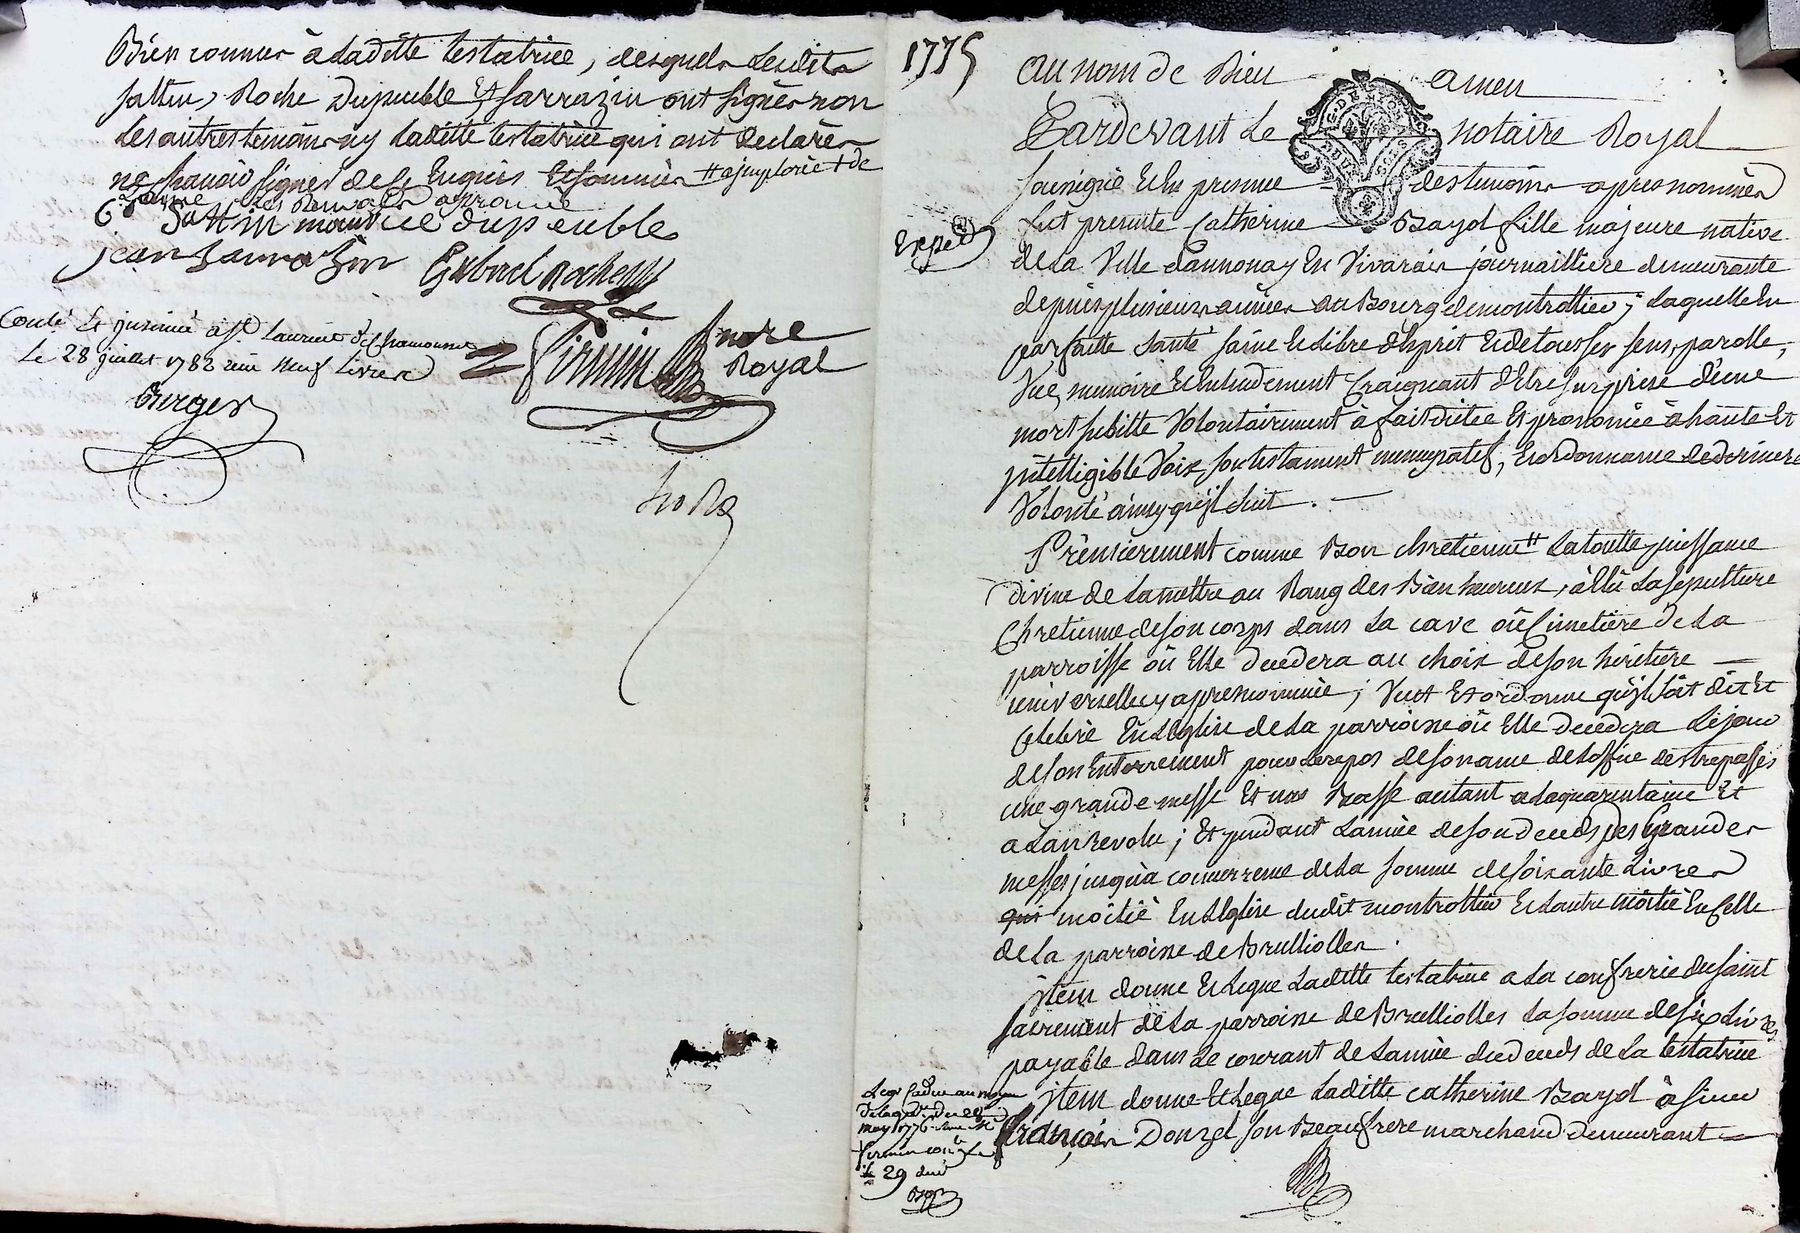 Bien connus à Laditte testatrice, desquels Lesdits
sattin, Roche Dupeuble Et sarrazin ont signés non
Les autres temoins ny Laditte testatrice qui ont declarés
ne sçavoir signer de ce Enquis Et sommés # a imploré + de
Laditte Les Renvois approuvé
Sattin maurice dupeuble
jean sarrazin Gabriel roche
Conlé Et jnsinué à St. Laurent de Chamousset
Le 28 juillet 1782 reçu neuf Livres
Berger
Firmin
nore Royal
1775
Au nom de Dieu amen
Pardevant Le notaire Royal
G. DE LYON
Soussigné Et En presence des temoins apres nommés
Expedié
fut presente Catherine Bayol fille majeure native
de La Ville d'annonay En Vivarais journailliere demeurante
depuis plusieurs années au Bourg de montrottier; Laquelle En
parfaitte santé saine Et Libre d'Esprit Et de tous ses sens, parolle,
Vue, memoire Et Entendement Craignant d'Etre surprise d'une
mort subitte Volontairement à fait dictée Et prononcée à haute Et
jntelligible Voix son testament nuncupatif, Et ordonnance de derniere
Volonté ainsy qu'jl suit.
Premierement comme Bon chretienne # La toutte puissance
divine de La mettre au Rang des Bien heureux, à Elu La sepulture
Chretienne de son corps dans La cave où Cimetière de La
parroisse où Elle decedera au choix de son héritiere
universelle cy apres nommée; Veut Et ordonne qu'jl soit dit Et
Celebré En L'Eglise de La parroisse où Elle decedera Le jour
de son Enterrement pour Le repos de son ame de Loffice des trepassés
une grande messe Et une Basse autant a La quarantaine Et
a L'an revolu; Et pendant L'année de son deceds des Grandes
messes jusqu'à concurrence de La somme de soixante Livres
qui moitié En L'Eglise dudit montrottier Et L'autre moitié En Celle
de La parroisse de Brulliolles.
jtem donne Et Legue Laditte testatrice a La confrerie du saint
sacrement de La parroisse de Brulliolles La somme de six Livres
payable dans Le courant de L'année du deceds de La testatrice
jtem donne Et Legue Laditte Catherine Bayol à sieur
françois Donzel son Beaufrere marchand demeurant
Legs Caduc au moyen
may 1776
Firmin
Le 29 dud